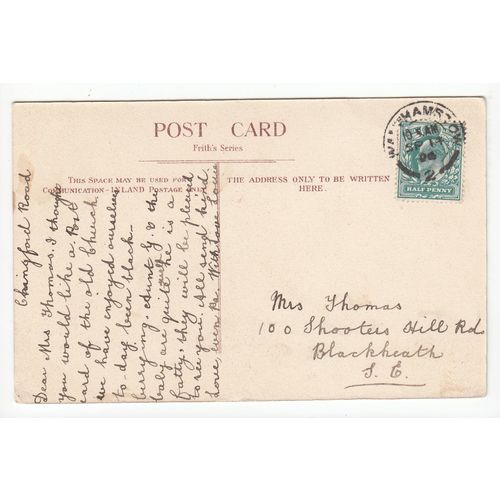 POST CARD
Frith's Series
THIS SPACE MAY BE USED FOR
COMMUNICATION - INLAND POSTAGE ONLY.
THE ADDRESS ONLY TO BE WRITTEN
HERE.
HALF PENNY
Chingford Road
Dear Mrs Thomas. I thought
you would like a. Post
card of the old Church,
we have enjoyed ourselves
to day been black-
berrying. Aunt L. & the
baby are quite well he is a
fatty. they will be pleased
to see you. All send kind
love, With love
Mrs Thomas
100 Shooters Hill Rd
Blackheath
S. E.